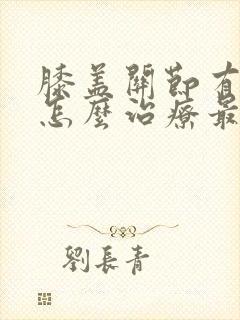 膝盖關節有
怎麼治療最
劉長青